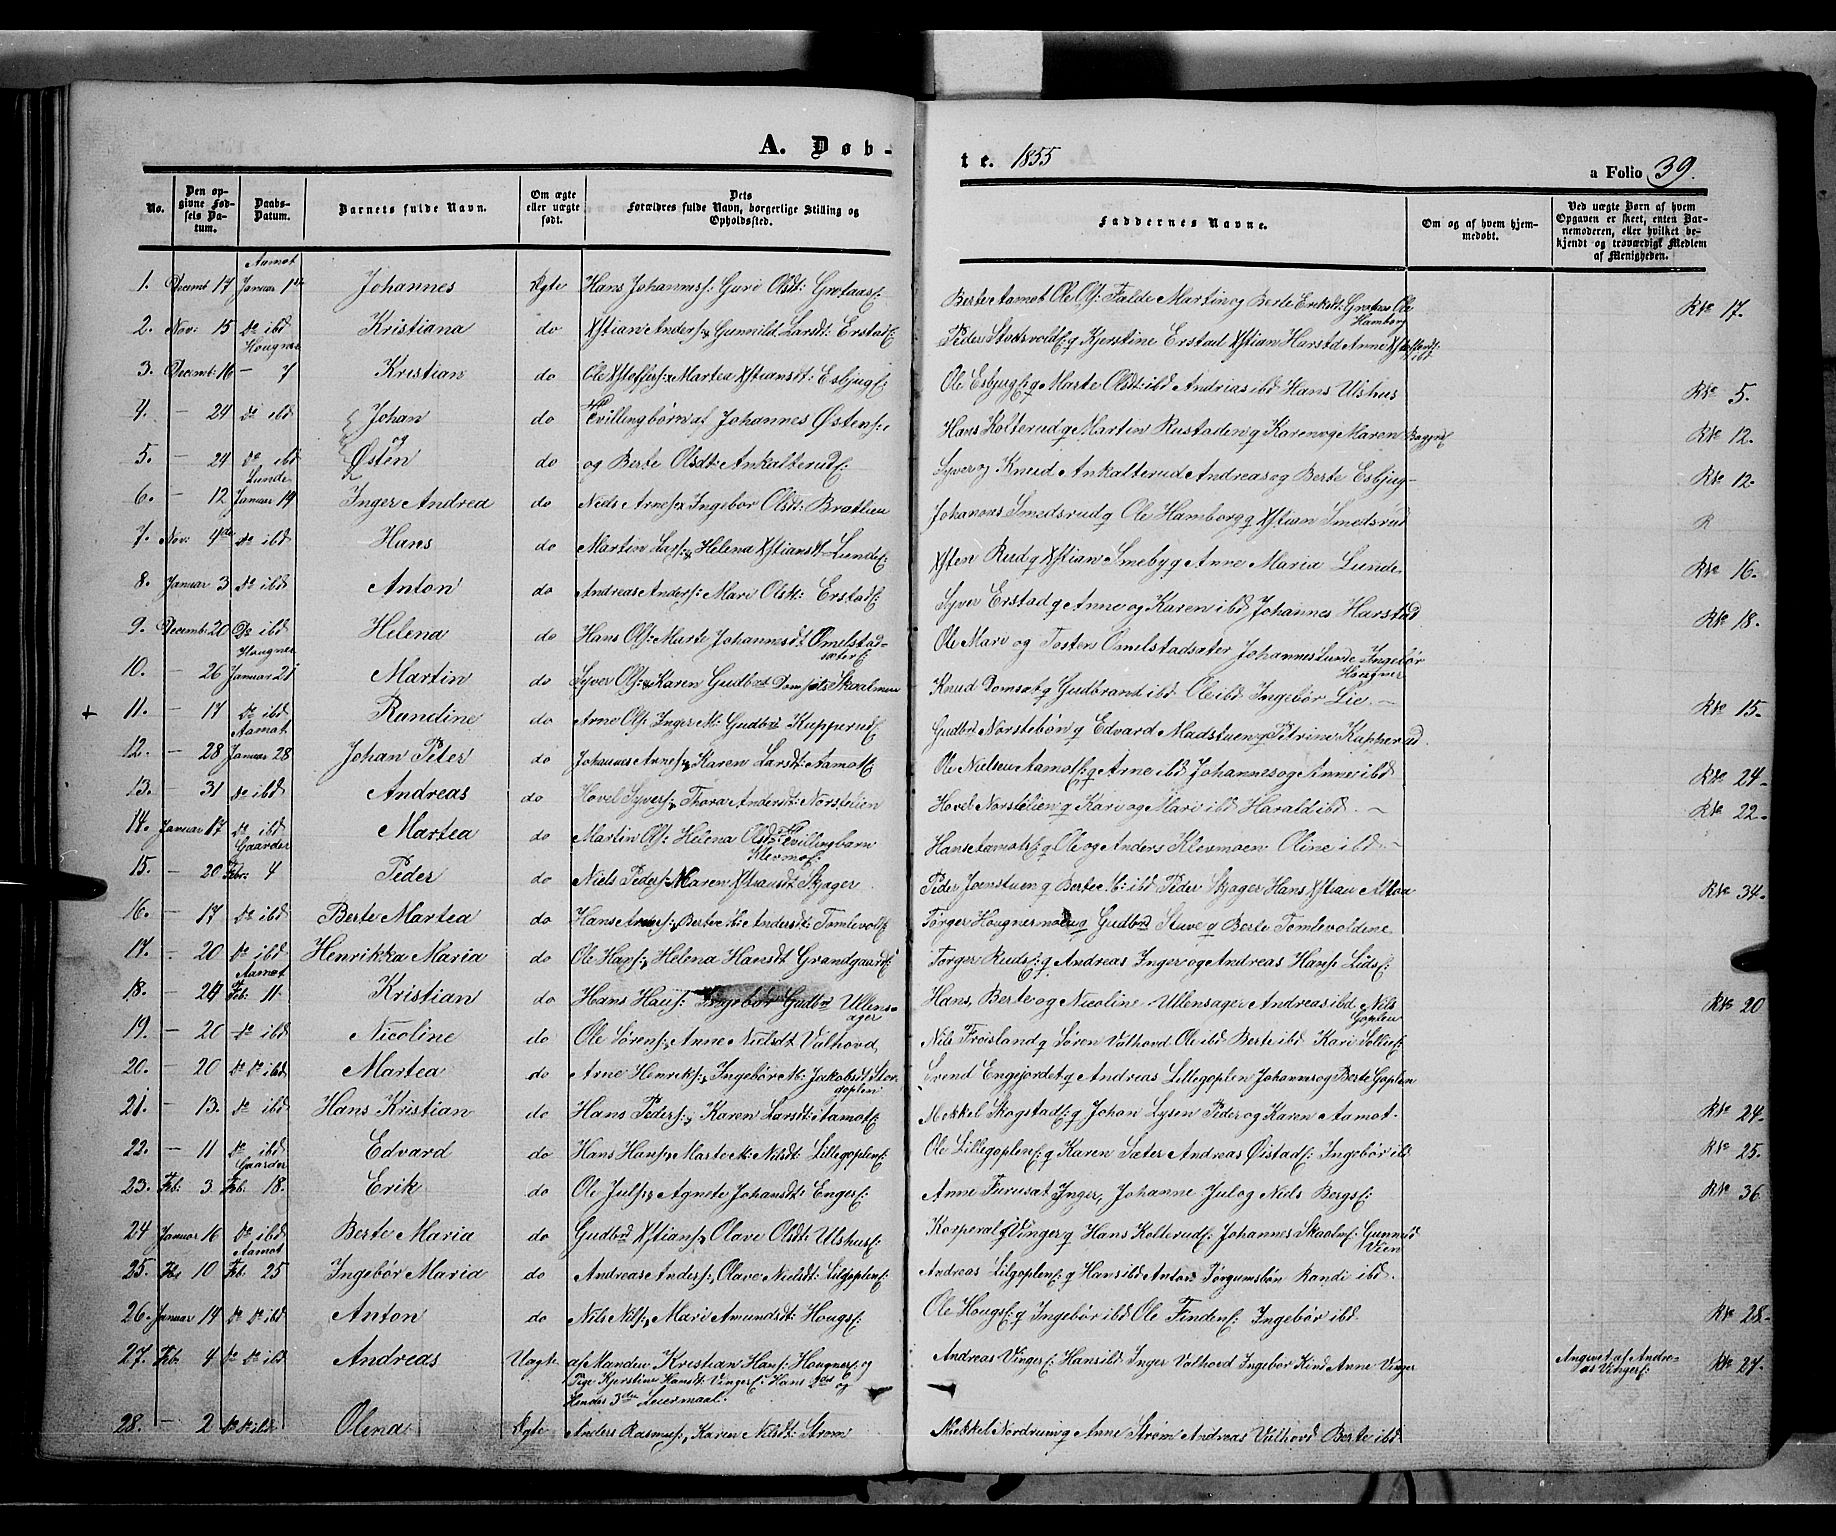 A. Døb-
te. 1855
a Folio 39.
No.
Den opgivne Fødsels Datum.
Daabs-Datum.
Barnets fulde Navn.
Om ægte eller uægte født.
Dets Forældres fulde Navn, borgerlige Stilling og Opholdssted.
Faddernes Navne.
Om og af hvem hjemmedøbt.
Ved uægte Børn af hvem Opgaven er skeet, enten Barnemoderen, eller hvilket bekjendt og troværdigt Medlem af Menigheden.
Aamot
1. Decemb 17 Januar 1ste Johannes Ægte Hans Johannesf: Guri Olsdt: Grøtaasf: Berte Aamot Ole Olf: Falde Martin og Berte Eriksdt: Grøtaas Ole Hamborg RNo 17.
2. Nov: 15 do ibd Kristiana do Xstian Andersf: Gunnild Larsdt: Erstadf: Peder Stadsvoldf: q Kjerstine Erstad Xstian Harstad Anne
Hougner
3. Decemb: 16 — 7 Kristian do Ole Xstoffersf: Martea Xstiansdt: Esbjugf: Ole Esbjugf: q Marte Olsdt: ibd Andrias ibd Hans Ulshus RNo 5.
4. — 24 do ibd Johan do Tvillingbørn af Johannes Østensf: Hans Kolterud q Martin Rustaden q Karen og Maren RNo 12.
og
5. — 24 do ibd Østen do og Berte Olsdt: Ankalterudf: Syver og Knud Ankalterud Andreas og Berte Esbjug RNo 12.
Lunde
6. — 12 Januar 14 Inger Andrea do Niels Arnesf: Ingebor Olsdt: Bratlien Johannes Smedsrud q Ole Hamborg q Xstian Smedsrud R
7. Nov: 4de do ibd Hans do Martin Larsf: Helena Xstiansdt: Lundef: Xsten Rud q Xstian Smeby q Anne Maria Lunde RNo 16.
8. Januar 3 do ibd Anton do Andreas Andersf: Mari Olsdt: Erstadf: Syver Erstad q Anne og Karen ibd Johannes Harstad RNo 18.
9. Decemb: 20 do ibd Helena do Hans Olsf: Marte Johannesdt: Omelstadsæterf: Ole Mari og Tosten Omelstadsæter Johannes Lunde Ingebør Hougner
Hougner
10. — 26 Januar 21 Martin do Syver Olsf: Karen Gudbrd Domset Skaalmen Knud Domset q Gudbrand ibd Ole ibd Ingebør Lie RNo 15.
+ 11. — 17 do ibd Randine do Arne Olsf: Inger M: Gudbrd Kupperudf: Gudbrd Norstebøn q Edvard Madstuen q Petrine Kupperud.
Aamot
12. — 28 Januar 28 Johan Peter do Johannes Arnesf: Karen Larsdt: Aamotf: Ole Nielsen Aamotf: q Arne ibd Johannes og Anne ibd RNo 24.
13. — 31 do ibd Andreas do Hovel Syversf: Thora Andersdt: Norstelien Hovel Norstelien q Kari og Mari ibd Harald ibd RNo 22.
14. Januar 17 do ibd Martea do Martin Olsf: Helena Olsdt: Tvillingbarn Klevmof: Hans Aamotsf: q Ole og Anders Klevmoen Oline ibd
Gaarder
15. 20 Febr: 4 Peder do Niels Pedersf: Maren Xstiansdt Skjager Peder Joenstuen q Berte M: ibd Peder Skjager Hans Xstian RNo 34.
16. — 17 do ibd Berte Martea do Hans Arnesf: Berte M: Andersdt: Tomlevoldf: Tørger Hougnermoen q Gudbrd Stuve q Berte Tomlevoldene
17. — 20 do ibd Henrikka Maria do Ole Hansf: Helena Hansdt Grandgaardf: Tørger Rudsf: q Andreas Inger og Andreas Hansf: Lidsf:
Aamot
18. — 24 Feb: 11. Kristian do Hans Hansf: Ingebør Gudbrd Ullensager Hans, Berte og Nicoline Ullensager Andreas ibd Nils Goplen RNo 20
19. — 20 do ibd Nicoline do Ole Sørensf: Anne Nielsdt Valhovd Nils Frøisland q Søren Valhovd Ole ibd Berte ibd Kari
20. — 20 do do ibd Martea do Arne Henriksf: Ingebør M: Jakobsdt Storgoplen Svend Engejordet q Andreas Lillegoplen Johannes og Berte Goplen
21. — 13. do ibd Hans Kristian do Hans Pedersf: Karen Larsdt: Aamotf: Mekkel Skogstadf: q Johan Lysen Peder og Karen Aamot RNo 24.
22. — 11 do ibd Edvard do Hans Hansf: Marte K: Nilsdt: Lillegoplenf: Ole Lillegoplenf: q Karen Sæter Andreas Øistadf: Ingebør ibd RNo 25.
Gaarder
23. Feb: 3. Feb. 18. Erik do Ole Julsf: Agnete Johansdt: Engerf: Anne Furusæt Inger, Johanne Jul og Niels Bergsf: RNo 36
24 Januar 16 do ibd Berte Maria do Gudbrd Xstiansf: Olave Olsdt: Ulshusf: Korporal Vinger q Hans Kolterudf: Johannes Skaalnf: Gunnild Vien
Aamot
25. Feb 10 Feb. 25 Ingebør Maria do Andreas Andersf: Olave Nielsdt: Lilgoplenf: Andreas Lilgoplenf: q Hans ibd Anton Tørgumsbøn Randi ibd.
26. Januar 14 do do ibd Anton do Nils Nilsf: Mari Amundsdt: Hougsf: Ole Hougsf: q Ingebør ibd Ole Findenf: Ingebør ibd. RNo 28.
27. Feb 4 do do ibd Andreas Uægte af Manden Kristian Hansf: Hougnerf: og Pige Kjerstine Hansdt: Vingerf: Hans 2det og Hendes 3die Leiermaal. Andreas Vingerf: Hans ibd Inger Valhovd Ingebør Kind Anne Vinger Angivet af Andreas Vingerf: RNo 27.
28. — 2 do do ibd Olena Ægte Anders Rasmusf: Karen Nilsdt: Strøm Mekkel Nordrum q Anne Strøm Andreas Valhovd Berte ibd